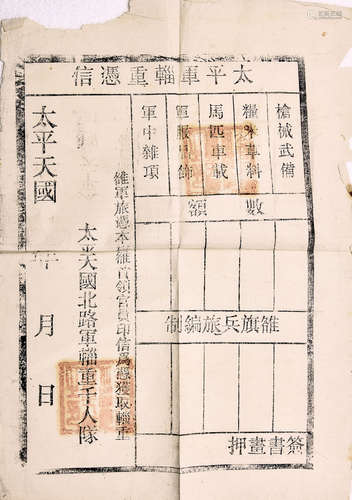 太平軍輜重憑信
槍械武備
糧米草料
馬匹車載
軍服冠飾
軍中雜項
數額
雒旗兵旅編制
簽書畫押
雒軍旅憑本雒首領官員印信為憑獲取輜重
太平天國北路軍輜重千人隊
太平天國 年 月 日